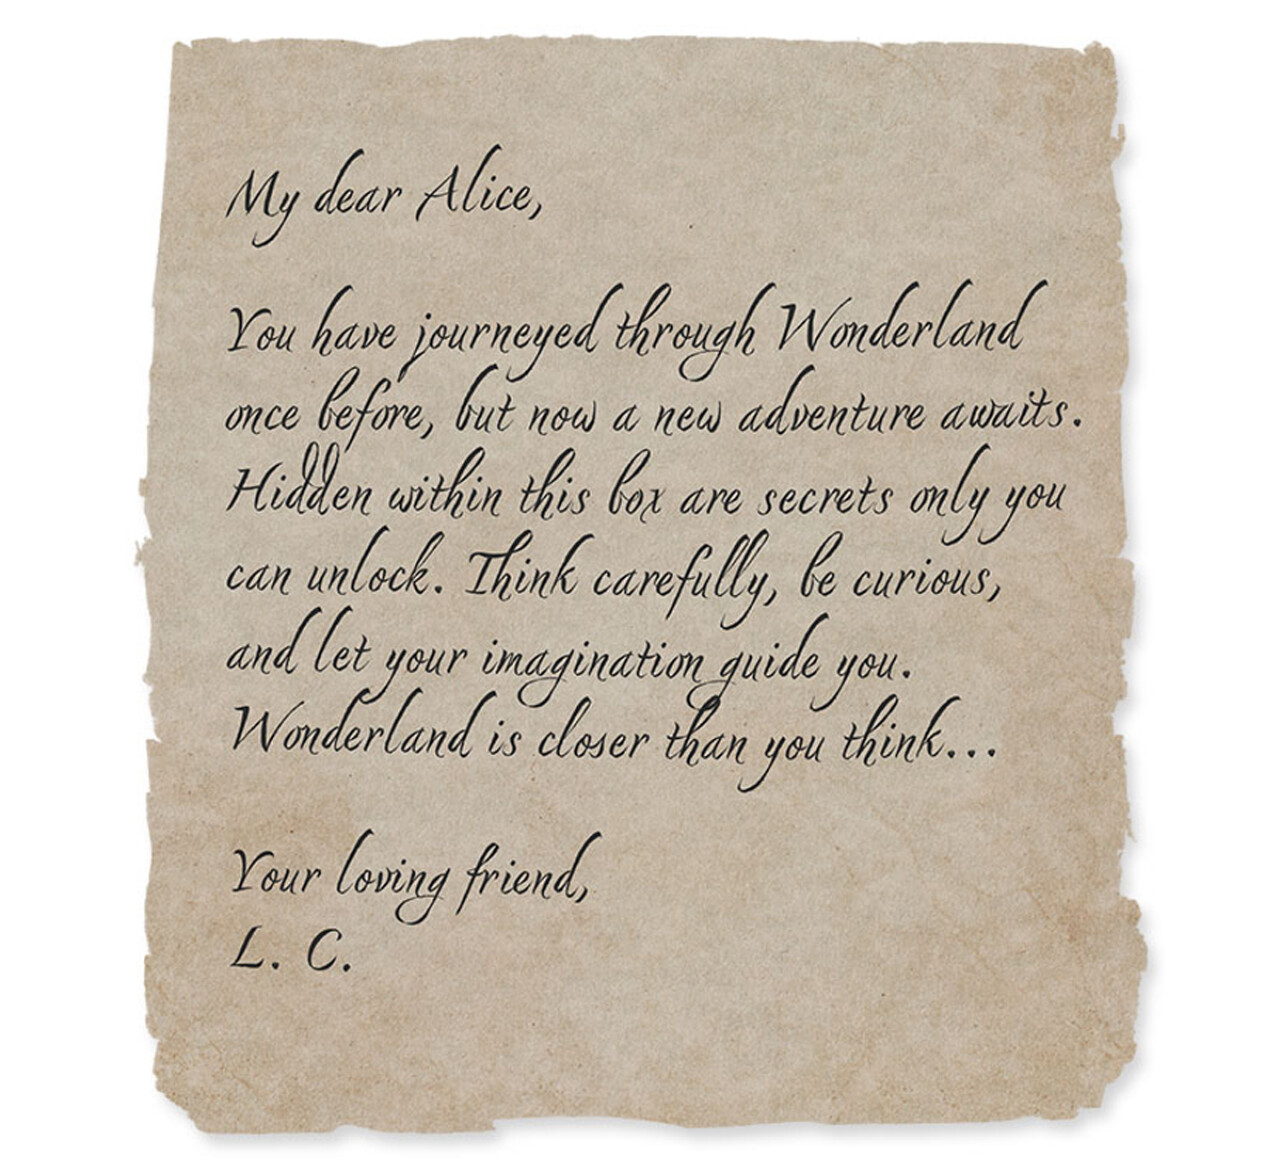 My dear Alice,
You have journeyed through Wonderland
once before, but now a new adventure awaits.
Hidden within this box are secrets only you
can unlock. Think carefully, be curious,
and let your imagination guide you.
Wonderland is closer than you think...
Your loving friend,
L. C.